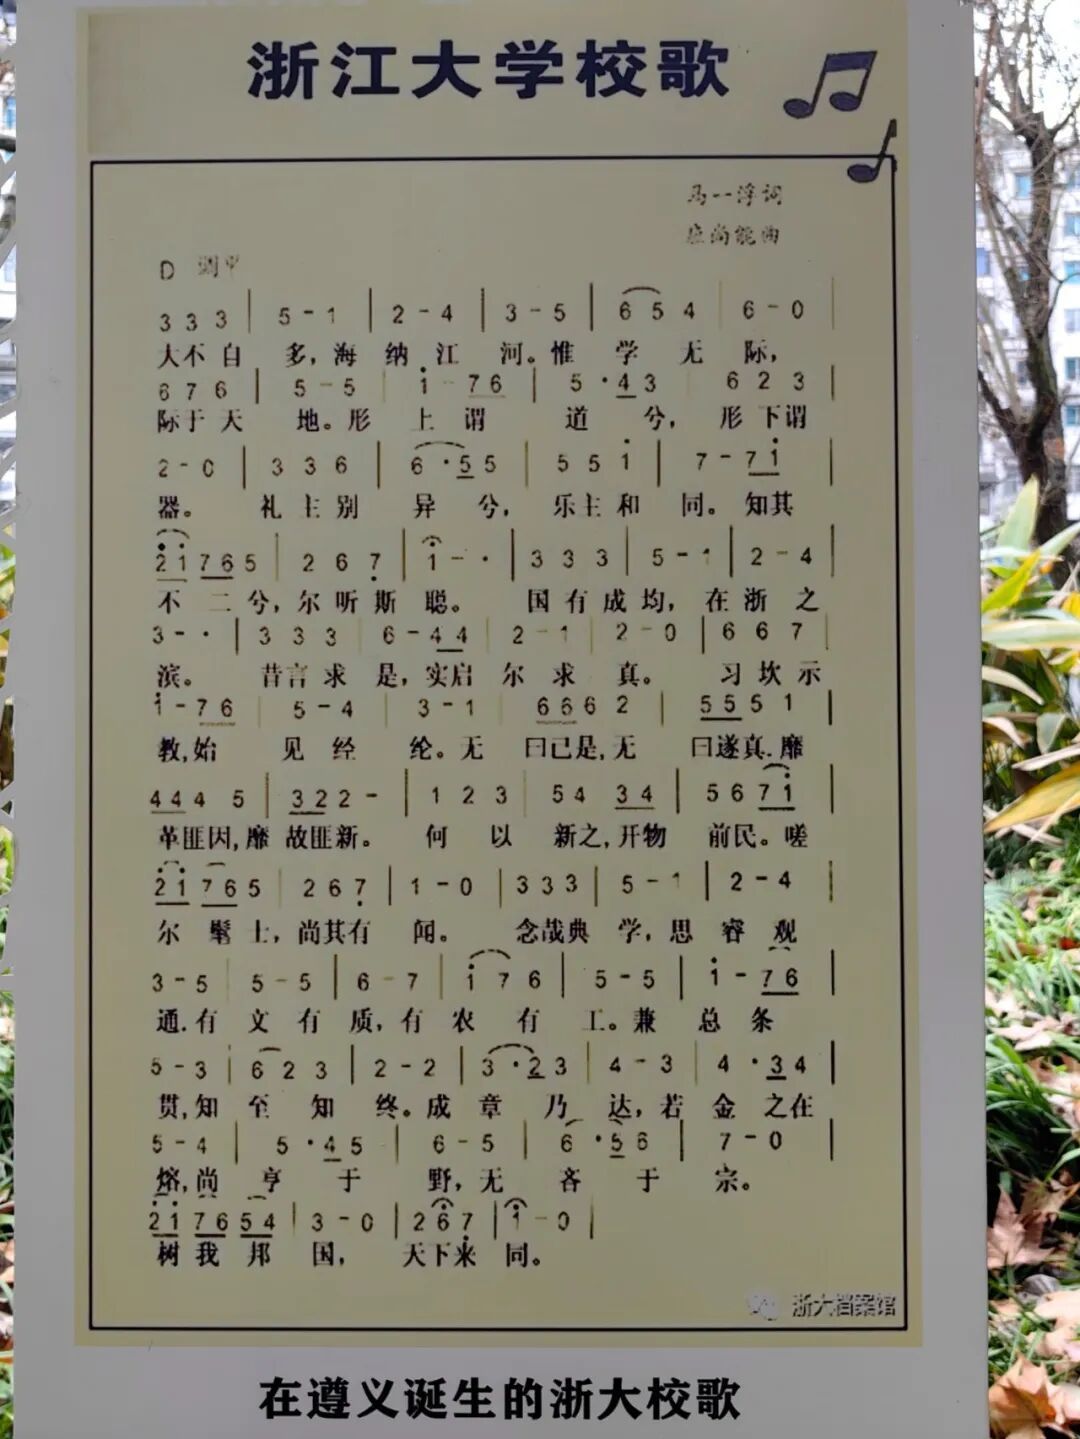 浙江大学校歌
马一浮词
应尚能曲
D 调 3/4
3 3 3 | 5 - 1 | 2 - 4 | 3 - 5 | 6 5 4 | 6 - 0 |
大不自 多，海 纳 江 河。惟 学 无 际，
6 7 6 | 5 - 5 | 1 - 7 6 | 5 · 4 3 | 6 2 3 |
际于天 地。形 上 谓 道 兮， 形下谓
2 - 0 | 3 3 6 | 6 · 5 5 | 5 5 1 | 7 - 7 1 |
器。 礼 主 别 异 兮， 乐主和 同。知其
2 1 7 6 5 | 2 6 7 | 1 - · | 3 3 3 | 5 - 1 | 2 - 4 |
不 二兮，尔听斯 聪。 国有成均，在浙之
3 - · | 3 3 3 | 6 - 4 4 | 2 - 1 | 2 - 0 | 6 6 7 |
滨。 昔言求 是，实启 尔 求 真。 习坎示
1 - 7 6 | 5 - 4 | 3 - 1 | 6 6 6 2 | 5 5 5 1 |
教，始 见 经 纶。无 曰己是，无 曰遂真.靡
4 4 4 5 | 3 2 2 - | 1 2 3 | 5 4 3 4 | 5 6 7 1 |
革匪因，靡 故匪新。 何 以 新之，开物 前民。嗟
2 1 7 6 5 | 2 6 7 | 1 - 0 | 3 3 3 | 5 - 1 | 2 - 4 |
尔 髦士，尚其有 闻。 念哉典 学，思睿观
3 - 5 | 5 - 5 | 6 - 7 | 1 7 6 | 5 - 5 | 1 - 7 6 |
通.有 文有 质，有 农 有 工。兼 总 条
5 - 3 | 6 2 3 | 2 - 2 | 3 · 2 3 | 4 - 3 | 4 · 3 4 |
贯，知 至 知 终。成 章 乃 达，若 金 之在
5 - 4 | 5 · 4 5 | 6 - 5 | 6 · 5 6 | 7 - 0 |
熔，尚 亨 于 野，无 吝 于 宗。
2 1 7 6 5 4 | 3 - 0 | 2 6 7 | 1 - 0 |
树我邦 国， 天下来 同。
浙大档案馆
在遵义诞生的浙大校歌